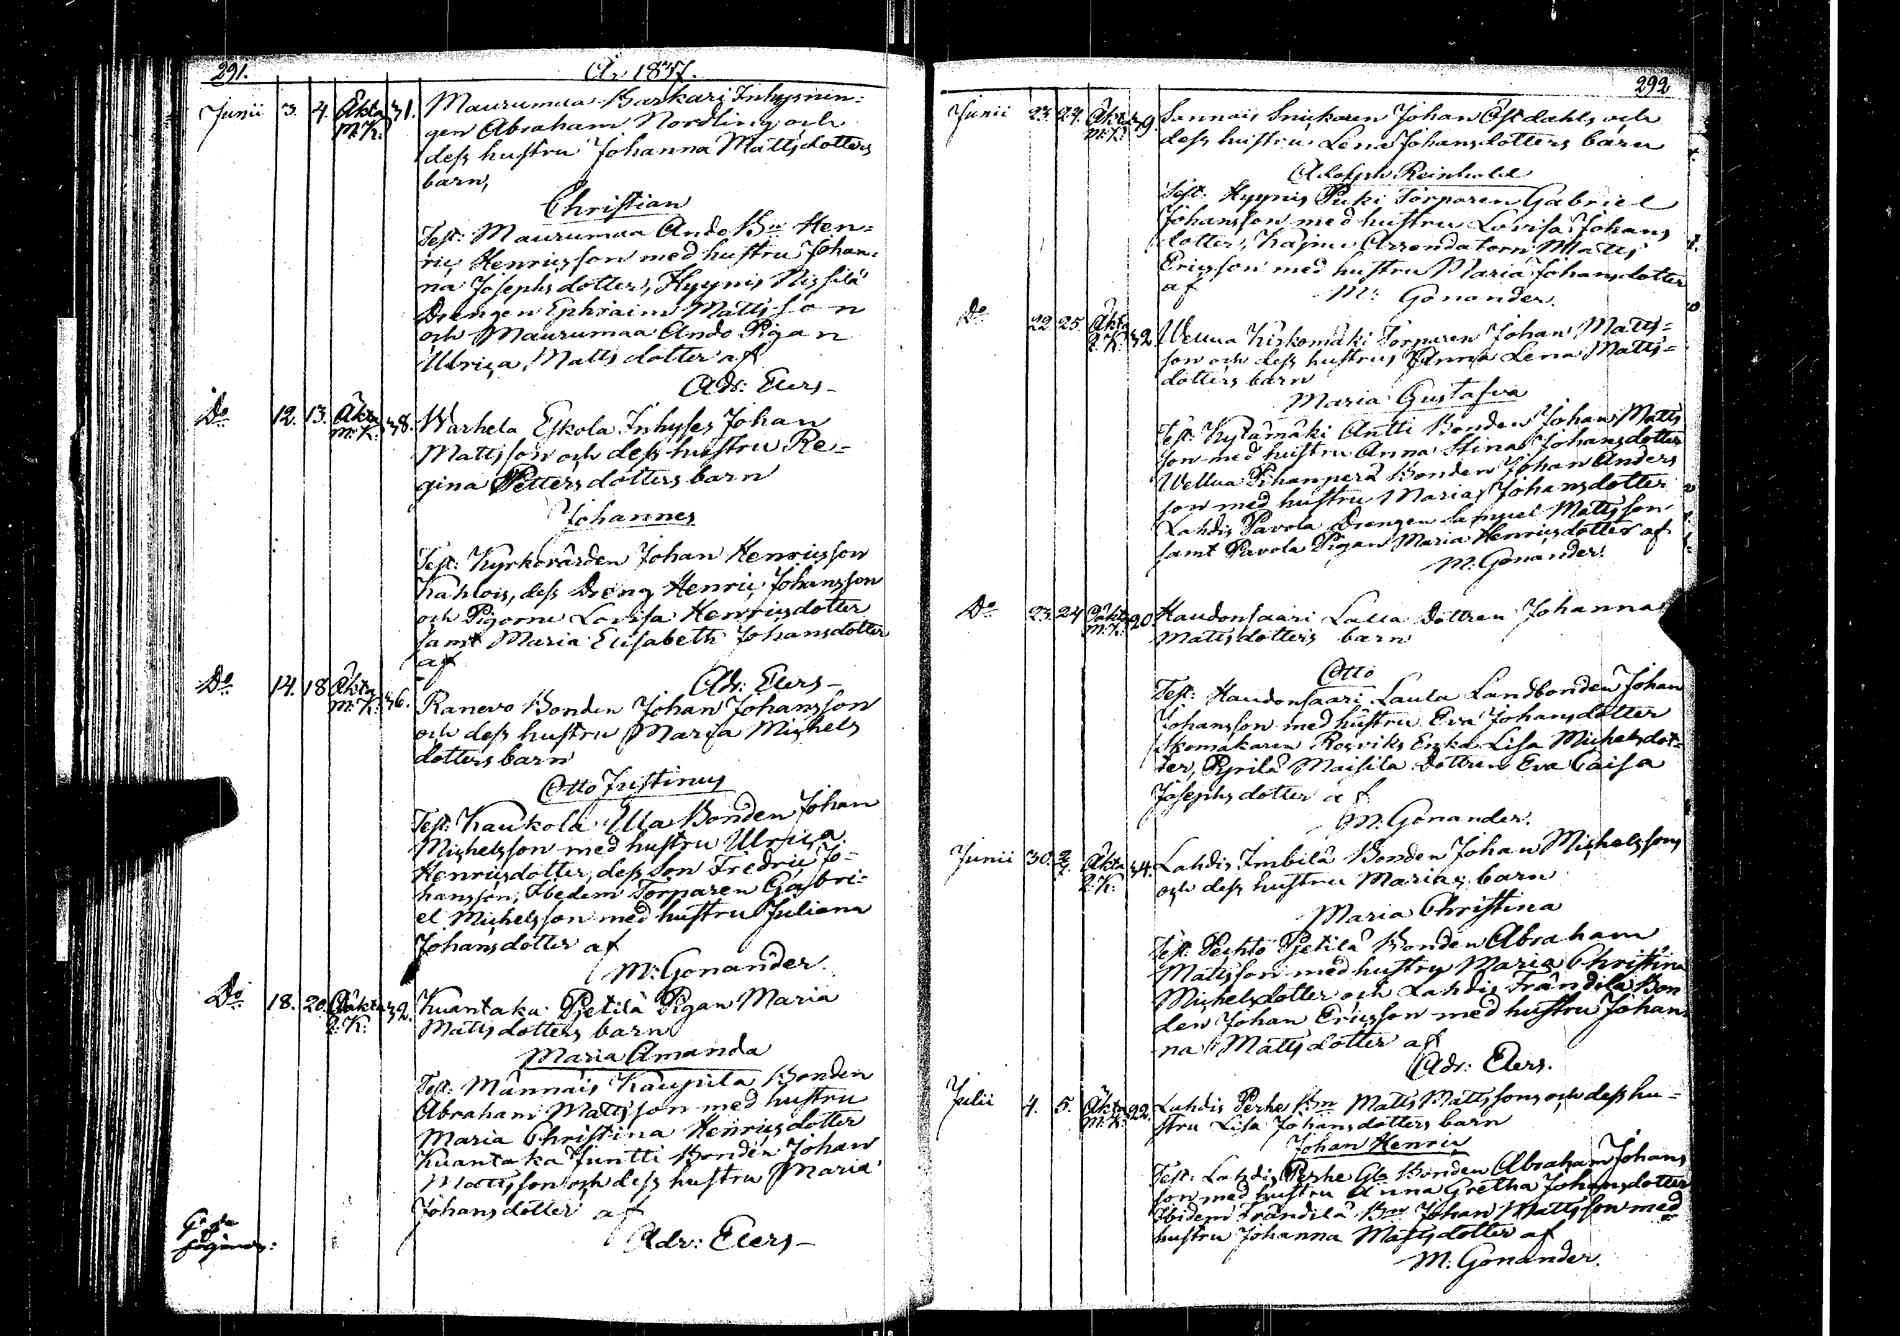 291.
År 1837.
Junii 3. 4. Äkta M.K. 31. Maurumaa Karkari Inhysnin-
gen Abraham Nordling och
dess hustru Johanna Mattsdotters
barn,
Christian
Test: Maurumaa Ando Bn Hen-
ric Henricsson med hustru Johan-
na Josephsdotter, Hyynis Nissilä
Drengen Ephraim Mattsson
och Maurumaa Ando Pigan
Ulrica Mattsdotter af
Adr: Elers
Do 12. 13. Äkta M.K. 38. Warhela Eskola Inhyses Johan
Mattsson och dess hustru Re-
gina Pettersdotters barn
Johannes
Test: Kyrkovärden Johan Henricsson
Kahlois, dess Dreng Henric Johansson
och Pigorne Lovisa Henricsdotter
samt Maria Elisabeth Johansdotter
af
Adr: Elers
Do 14. 18. Äkta M.K. 36. Ranevo Bonden Johan Johansson
och dess hustru Maria Michels
dotters barn
Otto Justinus
Test: Kaukola Ylla Bonden Johan
Michelsson med hustru Ulrica
Henricsdotter, dess Son Fredric Jo-
hansson, Ibedem Torparen Gabri-
el Michelsson med hustru Juliana
Johansdotter af
M: Gonander.
Do 18. 20. Oäkta Q.K. 32. Kuantaka Pjetilä Pigan Maria
Mattsdotters barn
Maria Amanda
Test: Männäis Kaupila Bonden
Abraham Mattsson med hustru
Maria Christina Henricsdotter
Kuantaka Juntti Bonden Johan
Mattsson och dess hustru Maria
Johansdotter af
Adr: Elers
292
Junii 23. 24. Äkta M.K. 39. Sannais Snickaren Johan Östdahls och
dess hustru Lena Johansdotters barn
Adolph Reinhold
Test: Hyynis Puki Torparen Gabriel
Johansson med hustru Lovisa Johans
dotter, Arrendatorn Matts
Ericsson med hustru Maria Johansdotter
af M: Gonander.
Do 22. 25. Äkta Q.K. 32. Wellua Kiskomäki Torparen Johan Matts-
son och dess hustrus Anna Lena Matts-
dotters barn
Maria Gustafva
Test: Kystämäki Antti Bonden Johan Matts
son med hustru Anna Stina Johansdotter
Wellua Pihanperä Bonden Johan Anders
son med hustru Maria Johansdotter
Lahdis Pavola Drengen Samuel Mattsson
samt Pavola Pigan Maria Henricsdotter af
M: Gonander.
Do 23. 24. Oäkta M.K. 20. Haudonsaari Laula Dottren Johanna
Mattsdotters barn
Otto
Test: Haudonsaari Laula Landbonden Johan
Johansson med hustru Eva Johansdotter
Skomakaren Rosviks Enka Lisa Michelsdot-
ter, Pyrilä Maisila Dottren Eva Caisa
Josephsdotter af
M: Gonander.
Junii 30. Äkta Q.K. 34. Lahdis Imbilä Bonden Johan Michelssons
och dess hustru Marias barn
Maria Christina
Test: Pechto Pjetilä Bonden Abraham
Mattsson med hustru Maria Christina
Michelsdotter och Lahdis Frändilä Bon
den Johan Ericsson med hustru Johan
na Mattsdotter af
Adr: Elers.
Julii 4. 5. Äkta M.K. 22. Lahdis Perhe Bn Matts Mattssons och dess hu-
stru Lisa Johansdotters barn
Johan Henric
Test: Lahdis Perhe Gla Bonden Abraham Johans
son med hustru Anna Gretha Johansdotter
Ibidem Frändilä Bn Johan Mattsson med
hustru Johanna Mattsdotter af
M: Gonander.